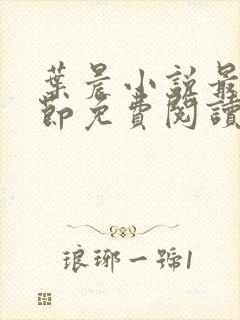 葉晨小説最
節免費閱讀
琅琊一號1